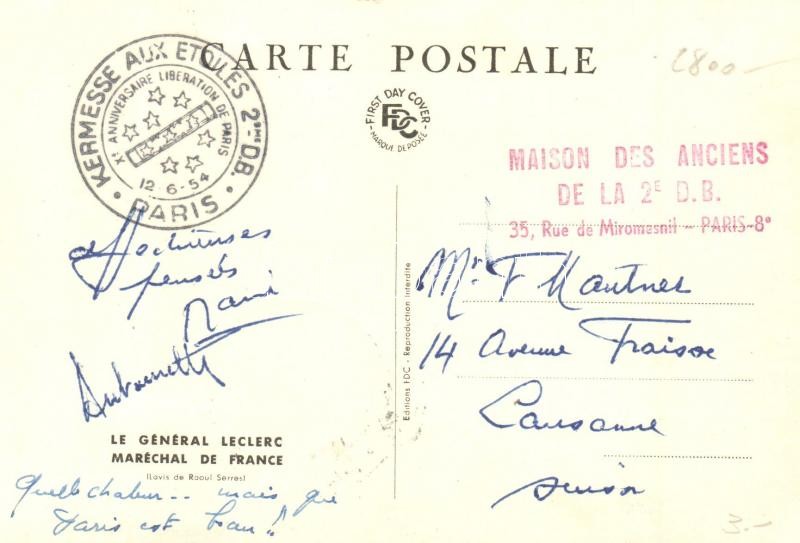 CARTE POSTALE
2800-
KERMESSE AUX ETOILES 2ème D.B.
Xe ANNIVERSAIRE LIBERATION DE PARIS
12-6-54
PARIS
FIRST DAY COVER
FDC
MARQUE DEPOSÉE
MAISON DES ANCIENS
DE LA 2E D.B.
35, Rue de Miromesnil - PARIS-8e
pensées
Antoinette
Editions FDC - Reproduction Interdite
Mr. F Mautner
14 Avenue Fraisse
Lausanne
Suisse
LE GÉNÉRAL LECLERC
MARÉCHAL DE FRANCE
(Lavis de Raoul Serres)
Quelle chaleur.. mais que
Paris est beau!!
3.-